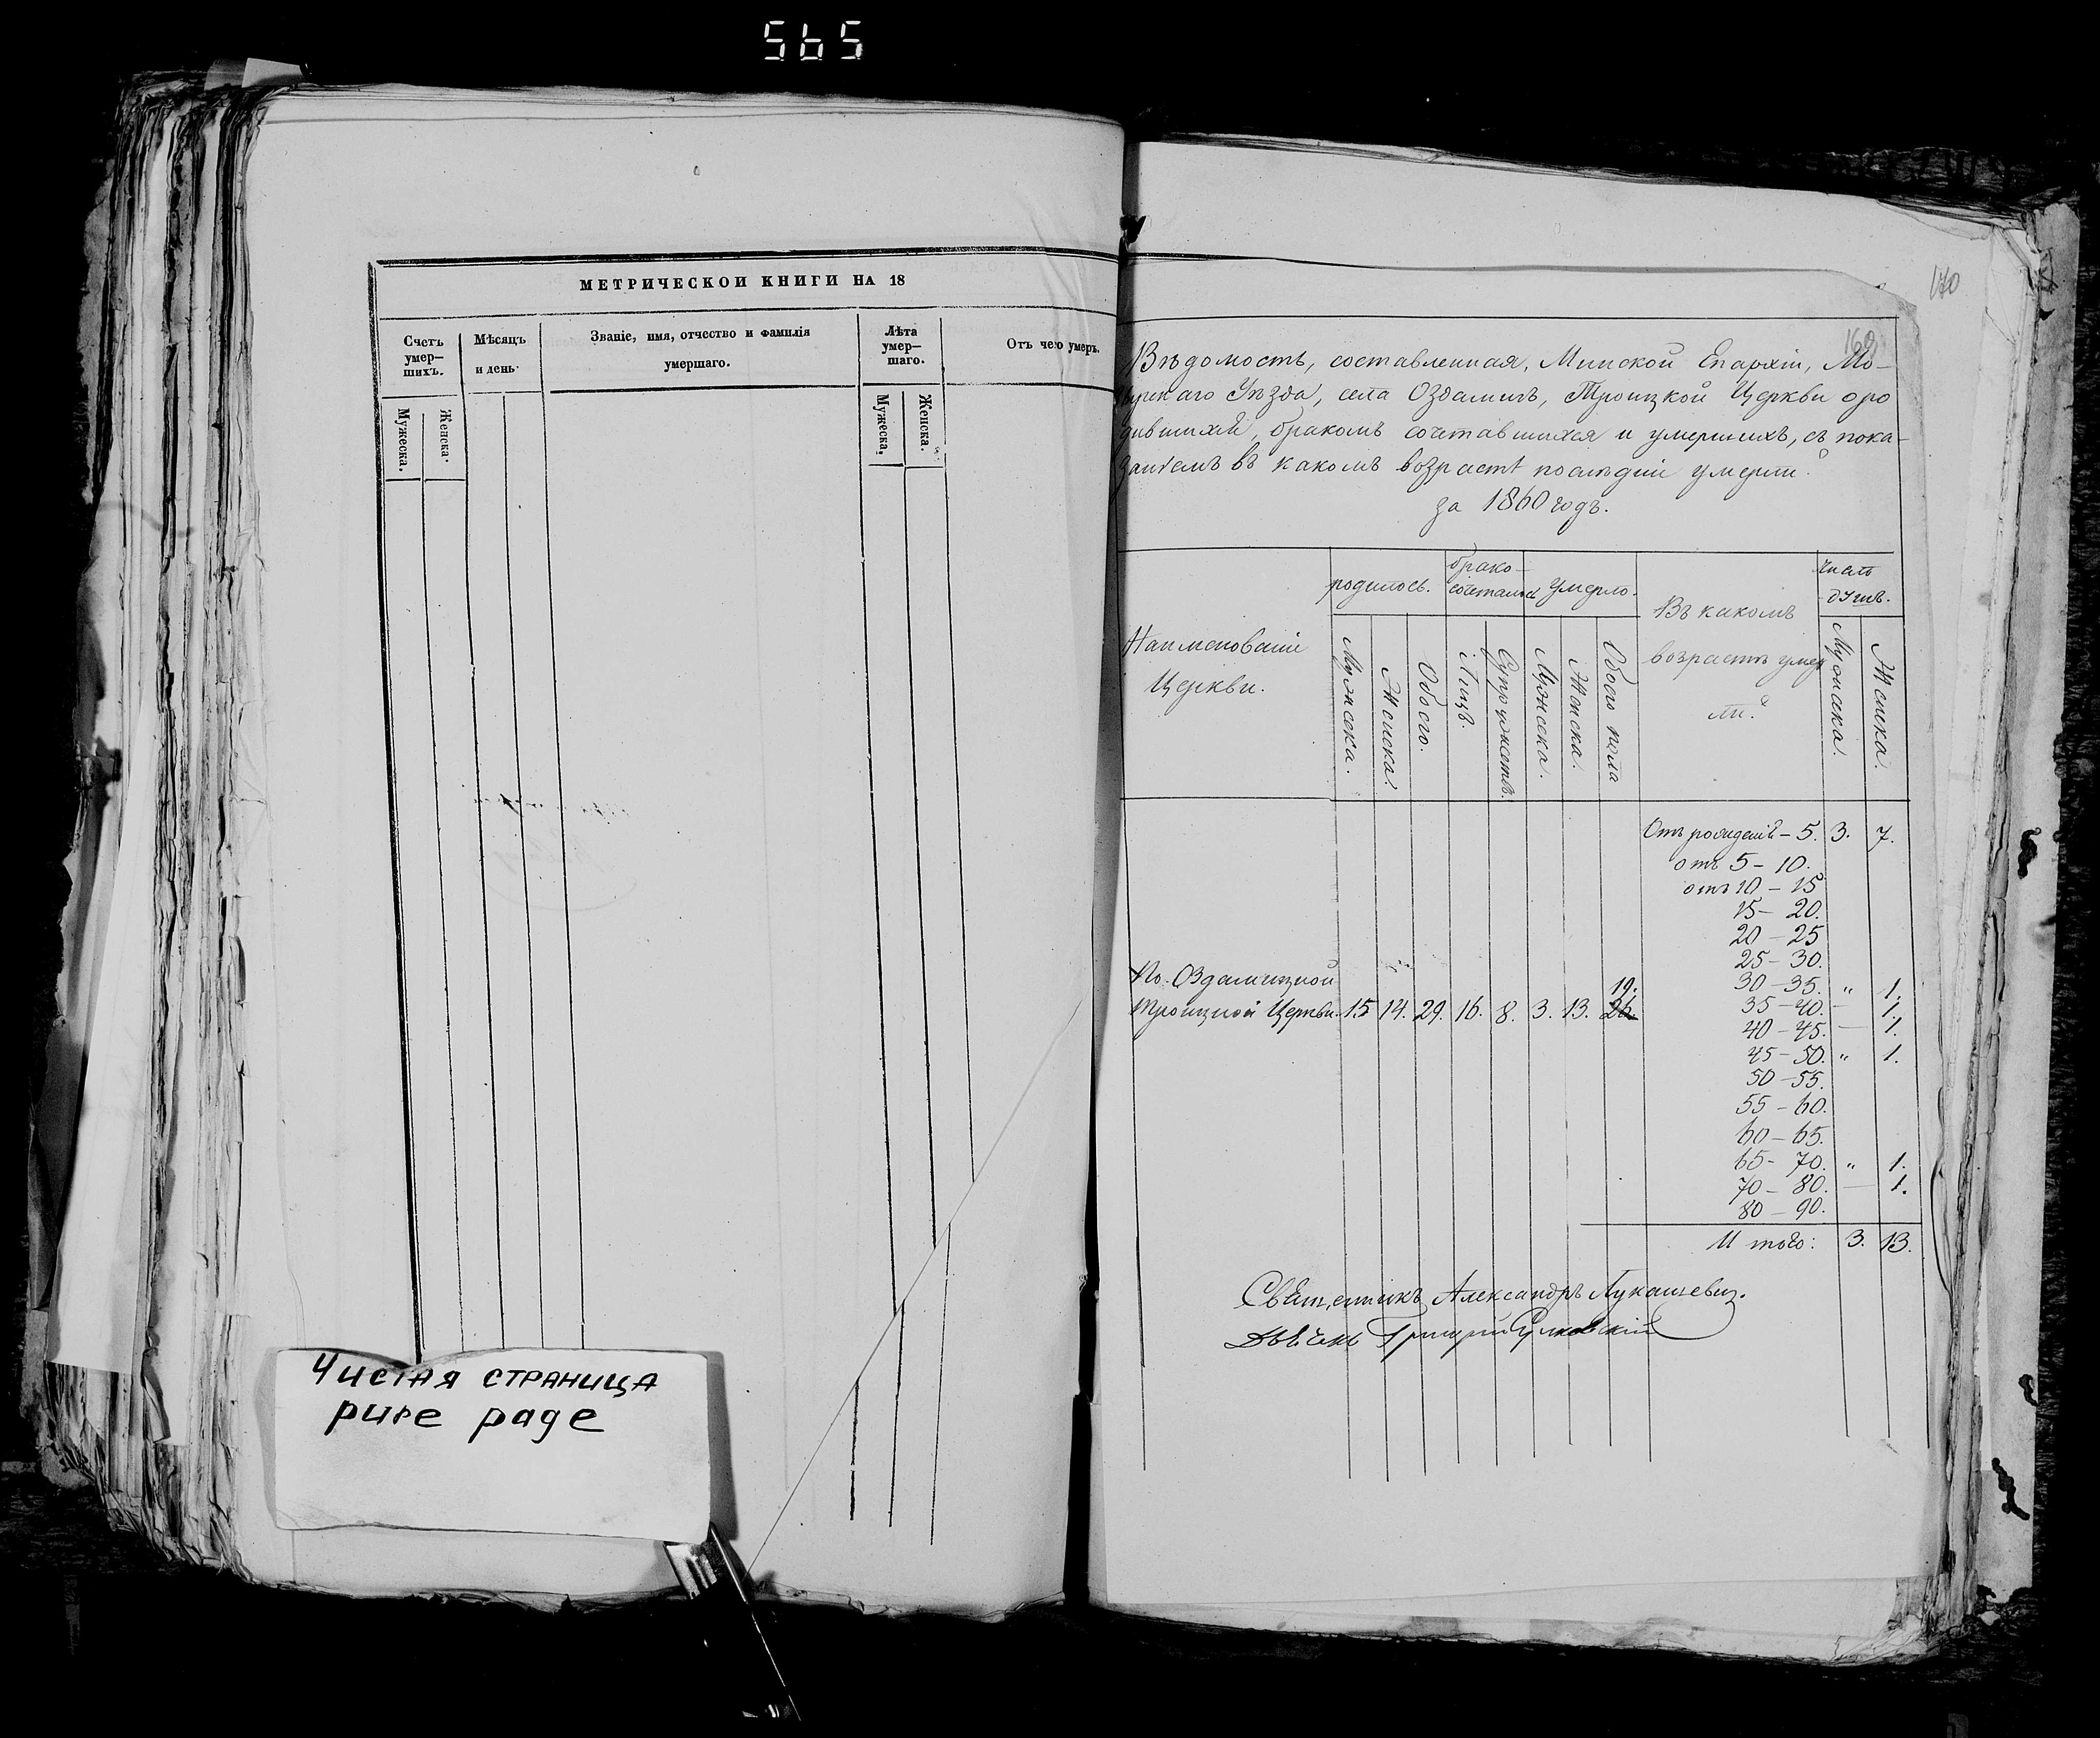 565
МЕТРИЧЕСКОЙ КНИГИ НА 18
Счетъ умер-шихъ.
Мѣсяцъ и день.
Званіе, имя, отчество и фамилія умершаго.
Лѣта умер-шаго.
Отъ чего умеръ.
Мужеска.
Женска.
Мужеска.
Женска.
Чистая страница
pure page
170
169
Вѣдомость, составленная, Минской Епархіи, Мо-
зырскаго Уѣзда, села Оздамичъ, Троицкой Церкви оро
дившихся, бракомъ сочетавшихся и умершихъ, съ пока-
заніемъ въ какомъ возрастѣ послѣдніе умерли.
за 1860 годъ.
Наименованіе Церкви.
родилось.
брако-сочеталось
умерло.
Въ какомъ возрастѣ умерли.
число душъ.
Мужеска.
Женска.
Обоего.
Лицъ.
Супружествъ.
Мужеска.
Женска.
Обоего пола
Мужеска.
Женска.
Отъ рожденія - 5. 3. 7.
отъ 5 - 10.
отъ 10 - 15
15 - 20.
20 - 25
25 - 30.
30 - 35. " 1.
35 - 40. - 1.
40 - 45. - 1.
45 - 50. " 1.
50 - 55.
55 - 60.
60 - 65.
65 - 70. " 1.
70 - 80. - 1.
80 - 90.
По Оздамицкой
19.
Троицкой Церкви. 15 14. 29. 16. 8. 3. 13. 26.
И того: 3. 13.
Священникъ Александръ Лукашевич.
Дьячекъ Григорій